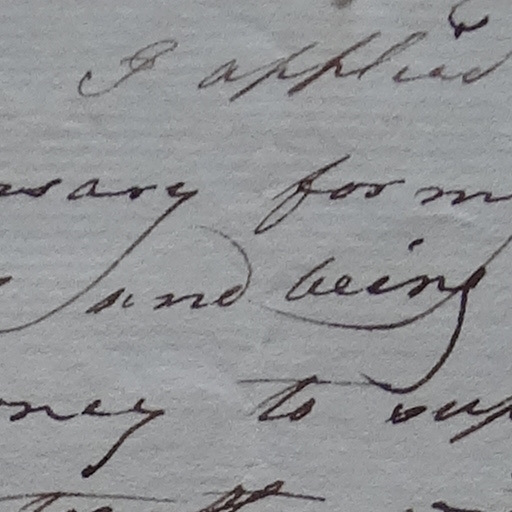 I applied
ssary for m
and being
ney to sup